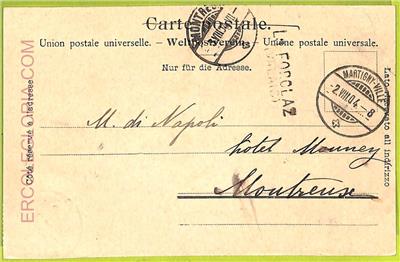 Carte postale.
Union postale universelle. – Weltpostverein. – Unione postale universale.
Nur für die Adresse.
Côté réservé à l'adresse
Lato riservato all indirizzo
MONTREUX
LA FORCLAZ
MARTIGNY-VILLE
-2.VIII.04. 8
M. di Napoli
hotel Monney
Montreuse
ERCOLEGLORIA.COM